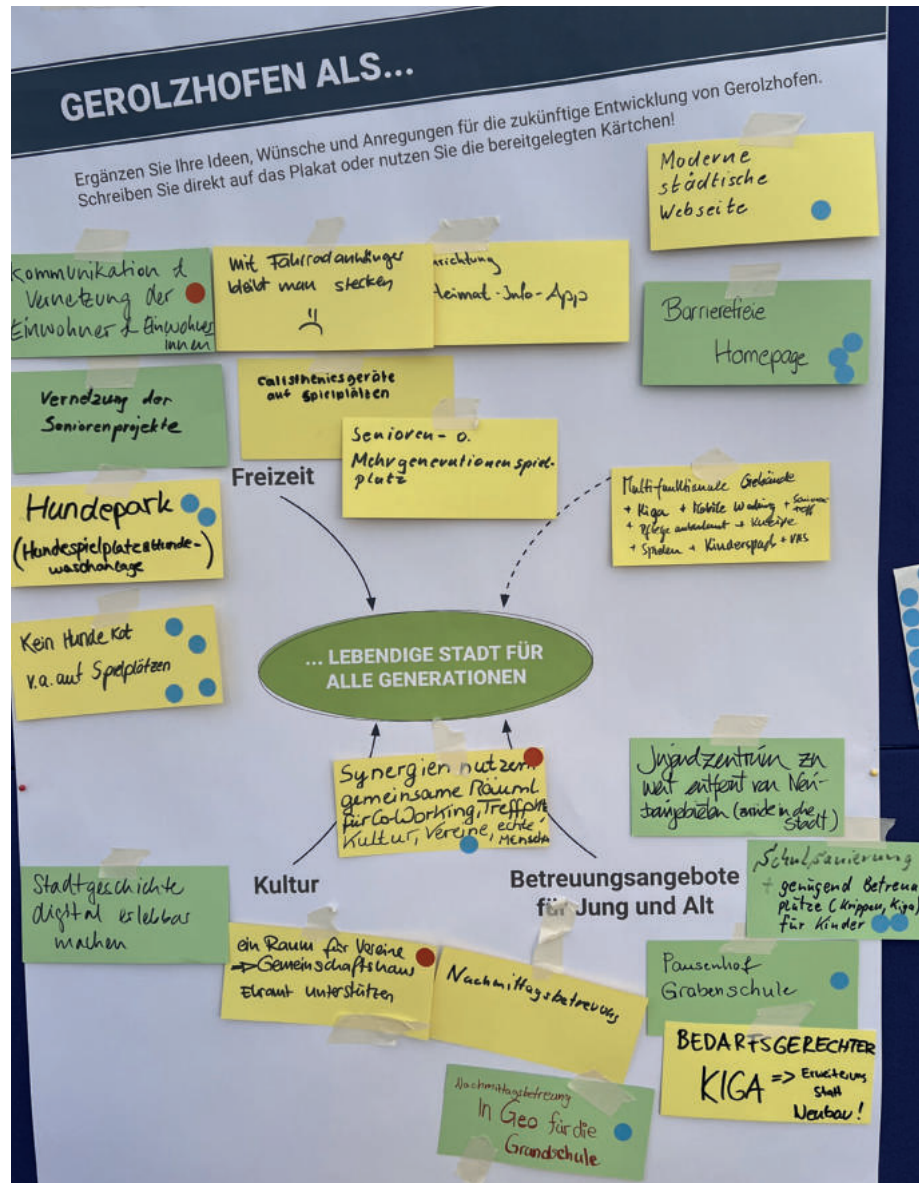 GEROLZHOFEN ALS...
Ergänzen Sie Ihre Ideen, Wünsche und Anregungen für die zukünftige Entwicklung von Gerolzhofen.
Schreiben Sie direkt auf das Plakat oder nutzen Sie die bereitgelegten Kärtchen!
Moderne
städtische
Webseite
Kommunikation &
Vernetzung der
Einwohner & Einwohner
innen
Mit Fahrradanhänger
bleibt man stecken
nrichtung
Heimat-Info-App
Barrierefreie
Homepage
Vernetzung der
Seniorenprojekte
Callsthenicsgeräte
auf Spielplätzen
Senioren- o.
Mehrgenerationenspiel-
platz
Freizeit
Hundepark
(Hundespielplatz & Hunde-
waschanlage
Multifunktionale Gebäude
+ Kiga + Mobile Working +
+ Pflege + Kneipe
+ Spielen + Kinderspaß + VHS
Kein Hunde Kot
v.a. auf Spielplätzen
... LEBENDIGE STADT FÜR
ALLE GENERATIONEN
Synergien nutzen
gemeinsame Räuml
für Co-Working, Treffpkt,
Kultur, Vereine, echte
Menschen
Jugendzentrum zu
weit entfernt von Neu-
baugebieten (zurück in die
Stadt)
Kultur
Betreuungsangebote
für Jung und Alt
Schulsanierung
+ genügend Betreu
plätze (Krippen, Kiga)
für Kinder
Stadtgeschichte
digital erlebbar
machen
ein Raum für Vereine
=> Gemeinschaftshaus
unterstützen
Nachmittagsbetreuung
Pausenhof
Grabenschule
BEDARFSGERECHTER
KIGA => Erweiterung
statt
Neubau!
Nachmittagsbetreuung
In Geo für die
Grundschule